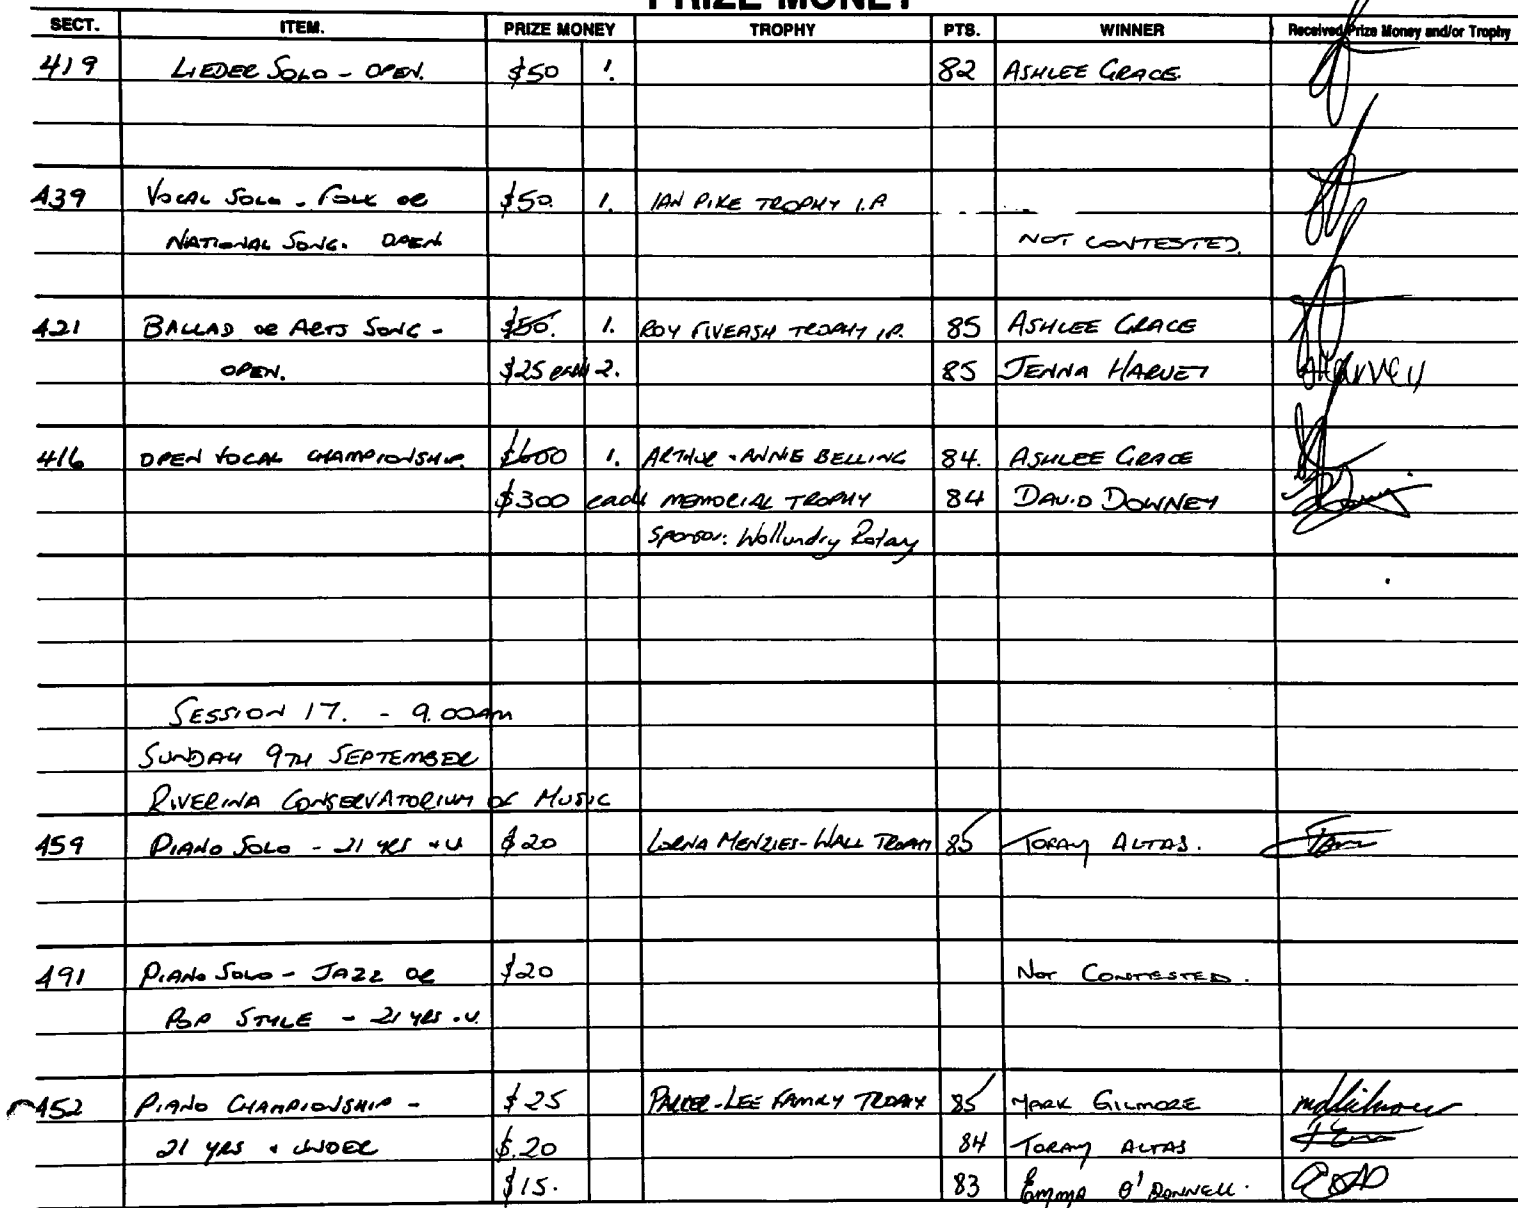 PRIZE MONEY
SECT. ITEM. PRIZE MONEY TROPHY PTS. WINNER Received Prize Money and/or Trophy
419 LIEDER SOLO - OPEN. $50 1. 82 ASHLEE GRACE.
439 VOCAL SOLO - FOLK OR $50. 1. IAN PIKE TROPHY I.P.
NATIONAL SONG. OPEN NOT CONTESTED.
421 BALLAD OR ARTS SONG - $50. 1. ROY FIVEASH TROPHY I.P. 85 ASHLEE GRACE
OPEN. $25 each 2. 85 JENNA HARVEY JHarvey
416 OPEN VOCAL CHAMPIONSHIP. $600 1. ARTHUR + ANNIE BELLING 84. ASHLEE GRACE
$300 each MEMORIAL TROPHY 84 DAVID DOWNEY
Sponsor: Wollundry Rotary
SESSION 17. - 9.00AM
SUNDAY 9TH SEPTEMBER
RIVERINA CONSERVATORIUM OF MUSIC
459 PIANO SOLO - 21 YRS + U $20 LORNA MENZIES-WALL TROPHY 85 TORAY ALTAS.
491 PIANO SOLO - JAZZ OR $20 NOT CONTESTED.
POP STYLE - 21 YRS + U.
452 PIANO CHAMPIONSHIP - $25 PARKER-LEE FAMILY TROPHY 85 MARK GILMORE
21 YRS + UNDER $.20 84 TORAY ALTAS
$15. 83 EMMA O'DONNELL.